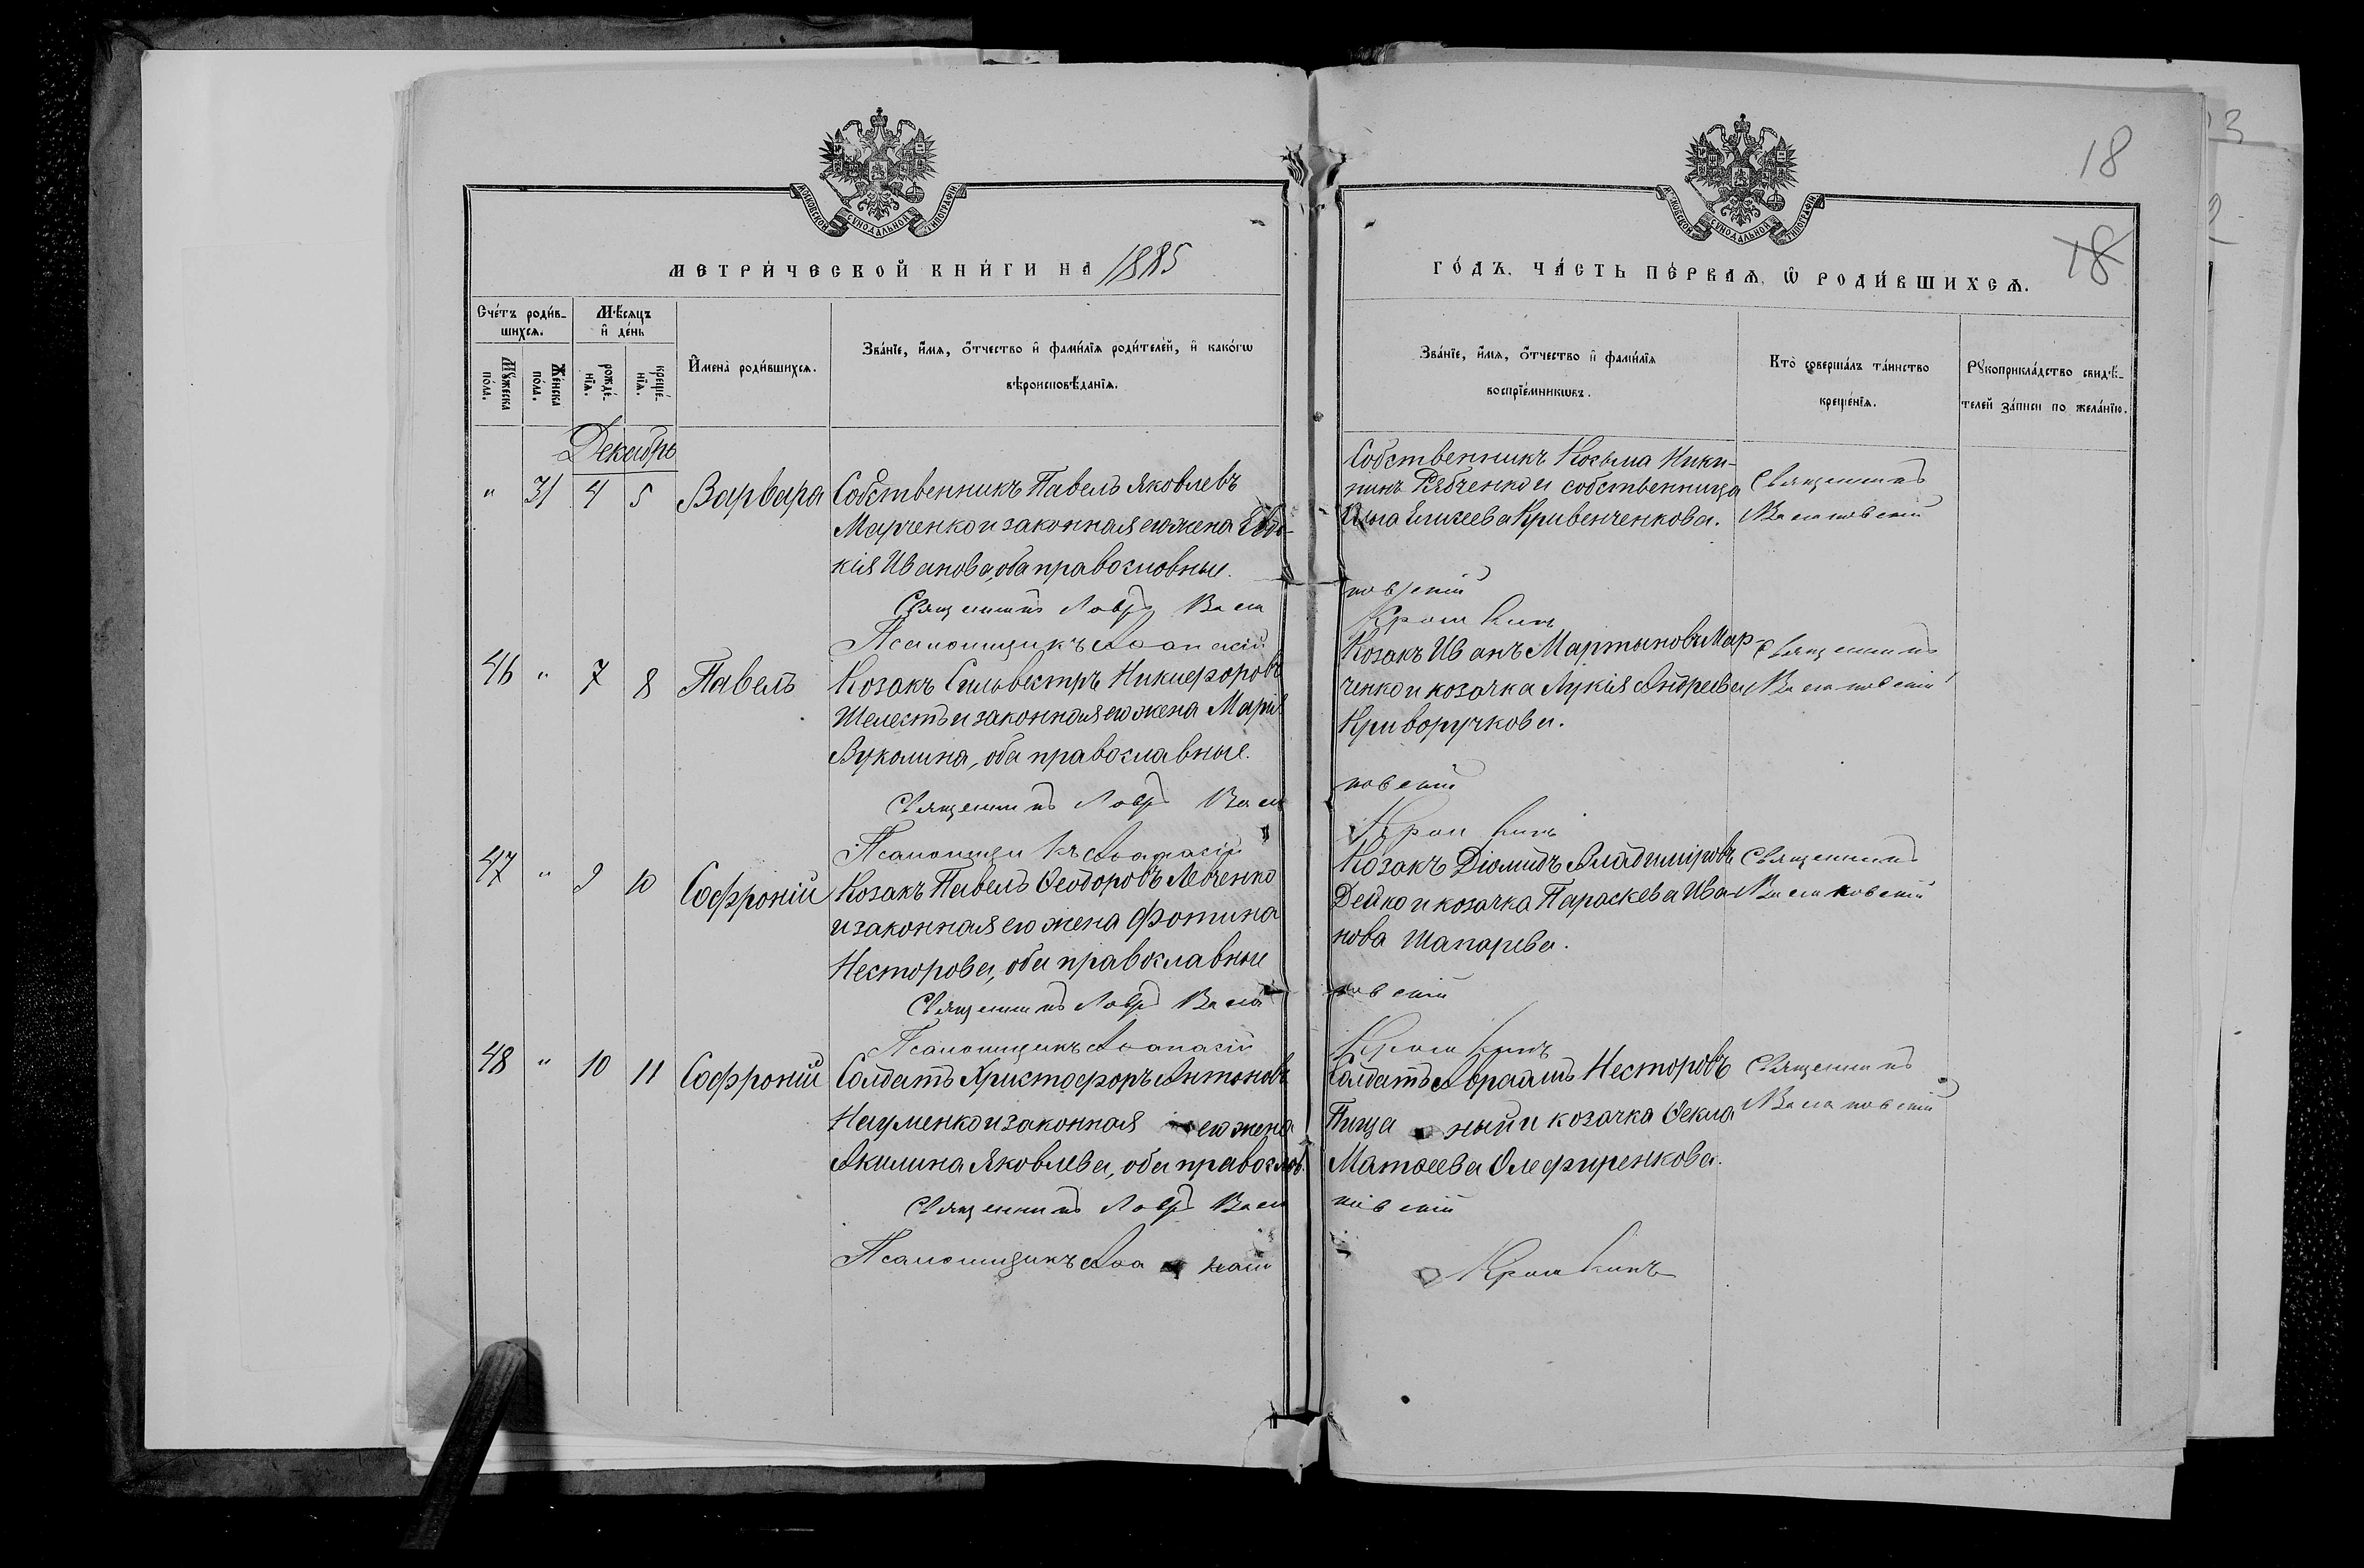 18
18
МОСКОВСКОЙ СУНОДАЛЬНОЙ ТИПОГРАФІИ
МОСКОВСКОЙ СУНОДАЛЬНОЙ ТИПОГРАФІИ
МЕТРИ́ЧЕСКОЙ КНИ́ГИ НА 1885
ГО́ДЪ, ЧА́СТЬ ПЕ́РВАѦ, Ѽ РОДИ́ВШИХСѦ.
Сче́тъ роди́в-
шихсѧ.
Мꙋ́жеска по́ла.
Же́нска по́ла.
Мѣ́сѧцъ и҆ де́нь
рожде́-
нїѧ.
креще́-
нїѧ.
И҆мена̀ роди́вшихсѧ.
Зва́нїе, и҆́мѧ, ѻ҆́тчество и҆ фами́лїѧ роди́телей, и҆ како́гѡ
вѣроисповѣ́данїѧ.
Зва́нїе, и҆́мѧ, ѻ҆́тчество и҆ фами́лїѧ
воспрїе́мникѡвъ.
Кто̀ соверша́лъ та́инство
креще́нїѧ.
Рꙋкоприкла́дство свидѣ́-
телей за́писи по жела́нїю.
Декабрь
" 31 4 5 Варвара
Собственникъ Павелъ Яковлевъ
Марченко и законная его жена Евдо-
кія Иванова, оба православные.
Священникъ Лавръ Васи
Псаломщикъ Аѳанасій
Собственникъ Козьма Ники-
тинъ Рябченко и собственница
Елисеева Кривенченкова.
новскій
Священникъ
46 " 7 8 Павелъ
Козакъ Сильвестръ Никифоровъ
Шелестъ и законная его жена Марія
Вуколина, оба православные.
Священникъ Лавръ Васи
Псаломщикъ Аѳанасій
Козакъ Иванъ Мартыновъ Мар-
ченко и козачка Лукія Андреева
Криворучкова.
новскій
Священникъ
47 " 9 10 Софроній
Козакъ Павелъ Ѳеодоровъ Левченко
и законная его жена Фотина
Несторова, оба православные
Священникъ Лавръ Васи
Псаломщикъ Аѳанасій
Козакъ Діомидъ Владиміровъ
Дейко и козачка Параскева Ива-
нова Шапарева.
новскій
Священникъ
48 " 10 11 Софроній
Солдатъ Христофоръ Антоновъ
Науменко и законная его жена
Акилина Яковлева, оба православ.
Священникъ Лавръ Васи
Псаломщикъ Аѳа насій
Солдатъ Авраамъ Несторовъ
ный и козачка Ѳекла
Матѳеева Олефиренкова.
новскій
Священникъ